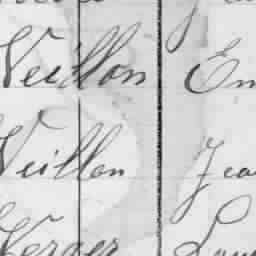 Veillon Em
Veillon Jea
Verger Lou